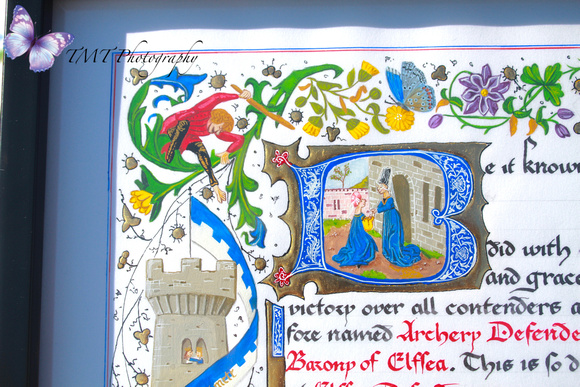 TMT Photography
Be it know
did with
and grace
victory over all contenders a
fore named Archery Defende
Barony of Elfsea. This is so d